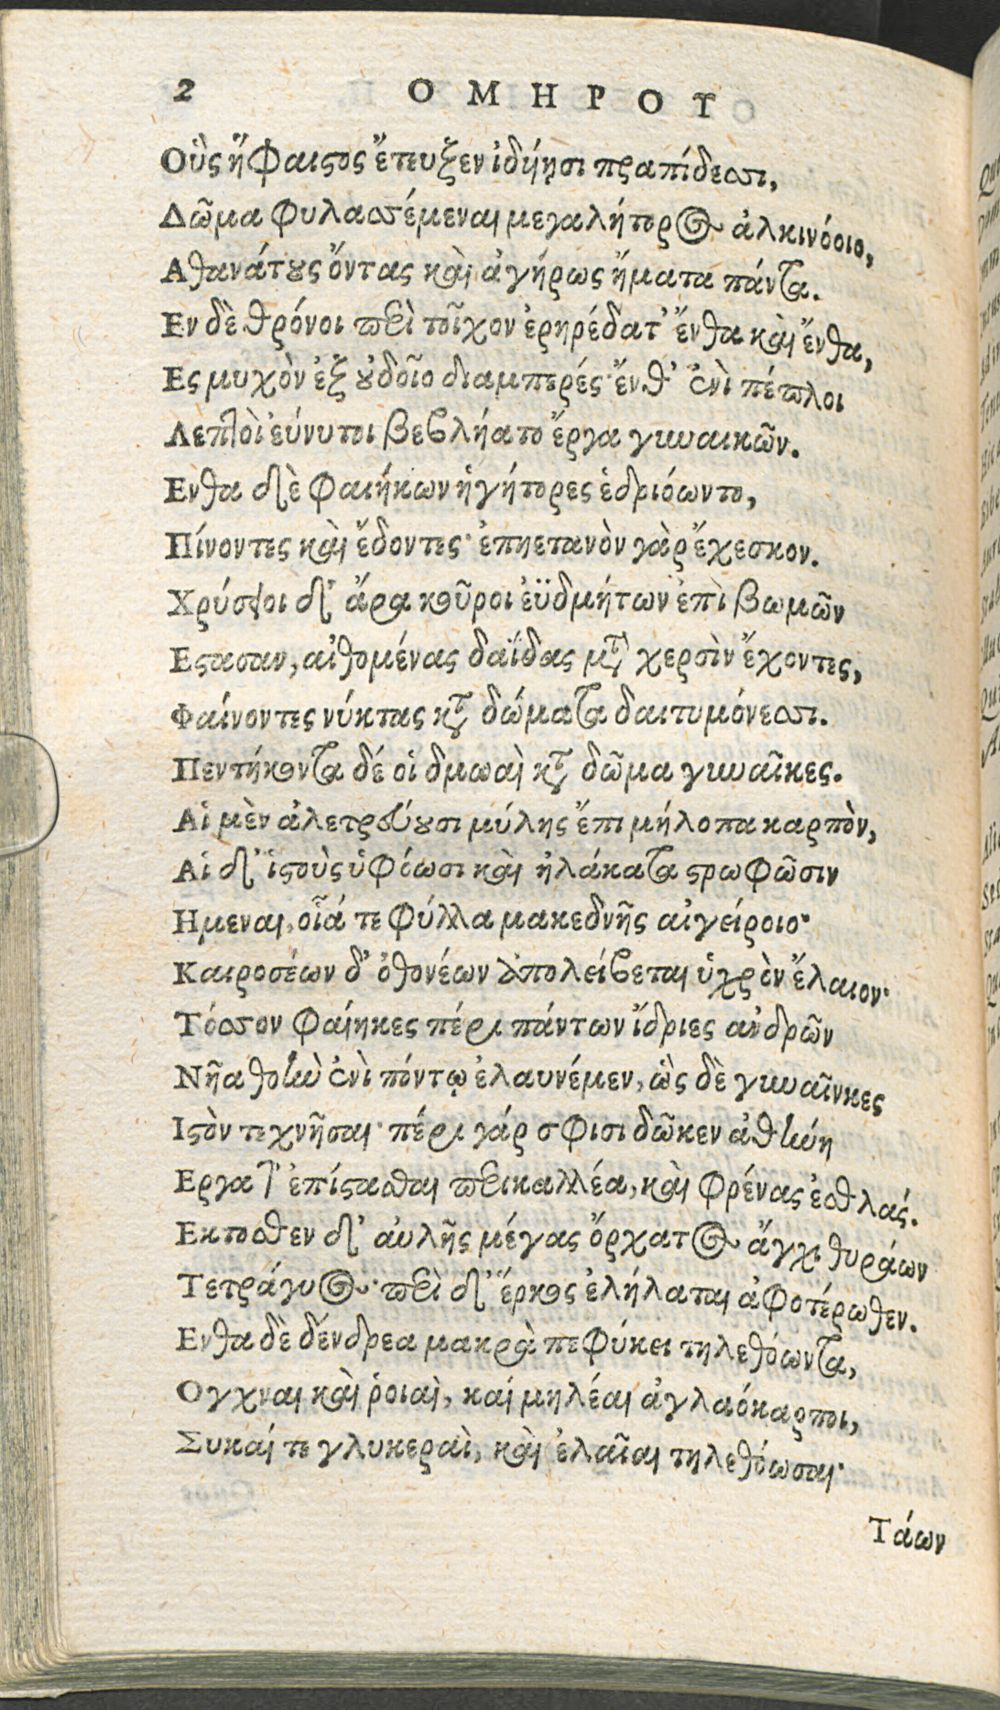 2 ΟΜΗΡΟΥ
Οὓς ἥφαιστος ἔτευξεν ἰδυίῃσι πραπίδεσσι,
Δῶμα φυλασσέμεναι μεγαλήτορος ἀλκινόοιο,
Αθανάτους ὄντας καὶ ἀγήρως ἤματα πάντα.
Εν δὲ θρόνοι περὶ τοῖχον ἐρηρέδατ' ἔνθα καὶ ἔνθα,
Ες μυχὸν ἐξ οὐδοῖο διαμπερές· ἔνθ' ἐνὶ πέπλοι
Λεπτοὶ ἐύνητοι βεβλήατο ἔργα γυναικῶν.
Ενθα δὲ φαιήκων ἡγήτορες ἑδριόωντο,
Πίνοντες καὶ ἔδοντες· ἐπηετανὸν γὰρ ἔχεσκον.
Χρύσειοι δ' ἄρα κοῦροι ἐϋδμήτων ἐπὶ βωμῶν
Εστασαν, αἰθομένας δαΐδας μετὰ χερσὶν ἔχοντες,
Φαίνοντες νύκτας κατὰ δώματα δαιτυμόνεσσι.
Πεντήκοντα δέ οἱ δμωαὶ κατὰ δῶμα γυναῖκες.
Αἱ μὲν ἀλετρεύουσι μύλης ἔπι μήλοπα καρπὸν,
Αἱ δ' ἱστοὺς ὑφόωσι καὶ ἠλάκατα στρωφῶσιν
Ημεναι, οἷά τε φύλλα μακεδνῆς αἰγείροιο·
Καιροσέων δ' ὀθονέων ἀπολείβεται ὑγρὸν ἔλαιον·
Τόσσον φαίηκες πέρι πάντων ἴδριες ἀνδρῶν
Νῆα θοὴν ἐνὶ πόντῳ ἐλαυνέμεν, ὣς δὲ γυναῖκες
Ιστὸν τεχνῆσαι· πέρι γάρ σφισι δῶκεν ἀθήνη
Εργα τ' ἐπίστασθαι περικαλλέα, καὶ φρένας ἐσθλάς.
Εκτοσθεν δ' αὐλῆς μέγας ὄρχατος ἄγχι θυράων
Τετράγυος· περὶ δ' ἕρκος ἐλήλαται ἀφοτέρωθεν.
Ενθα δὲ δένδρεα μακρὰ πεφύκει τηλεθόωντα,
Ογχναι καὶ ῥοιαὶ, καί μηλέαι ἀγλαόκαρποι,
Συκαί τε γλυκεραὶ, καὶ ἐλαῖαι τηλεθόωσαι·
Τάων